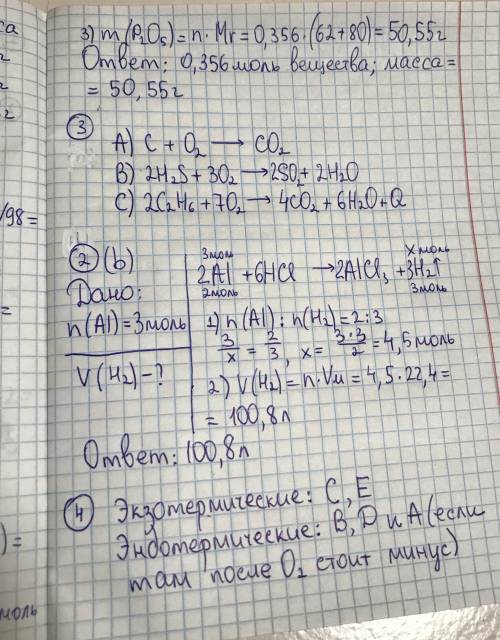 са
г
г
г
3) m(P₂O₅) = n · Mr = 0,356 · (62+80) = 50,55г
Ответ: 0,356 моль вещества; масса =
= 50,55г
/98 =
③
A) C + O₂ → CO₂
B) 2H₂S + 3O₂ → 2SO₂ + 2H₂O
C) 2C₂H₆ + 7O₂ → 4CO₂ + 6H₂O + Q
=
② (b)
Дано:
n(Al) = 3моль
V(H₂) - ?
3моль x моль
2Al + 6HCl → 2AlCl₃ + 3H₂↑
2моль 3моль
1) n(Al) : n(H₂) = 2 : 3
3/x = 2/3, x = 3·3/2 = 4,5 моль
2) V(H₂) = n · Vм = 4,5 · 22,4 =
= 100,8 л
Ответ: 100,8 л
④ Экзотермические: C, E
Эндотермические: B, D и A (если
там после O₂ стоит минус)
) =
моль